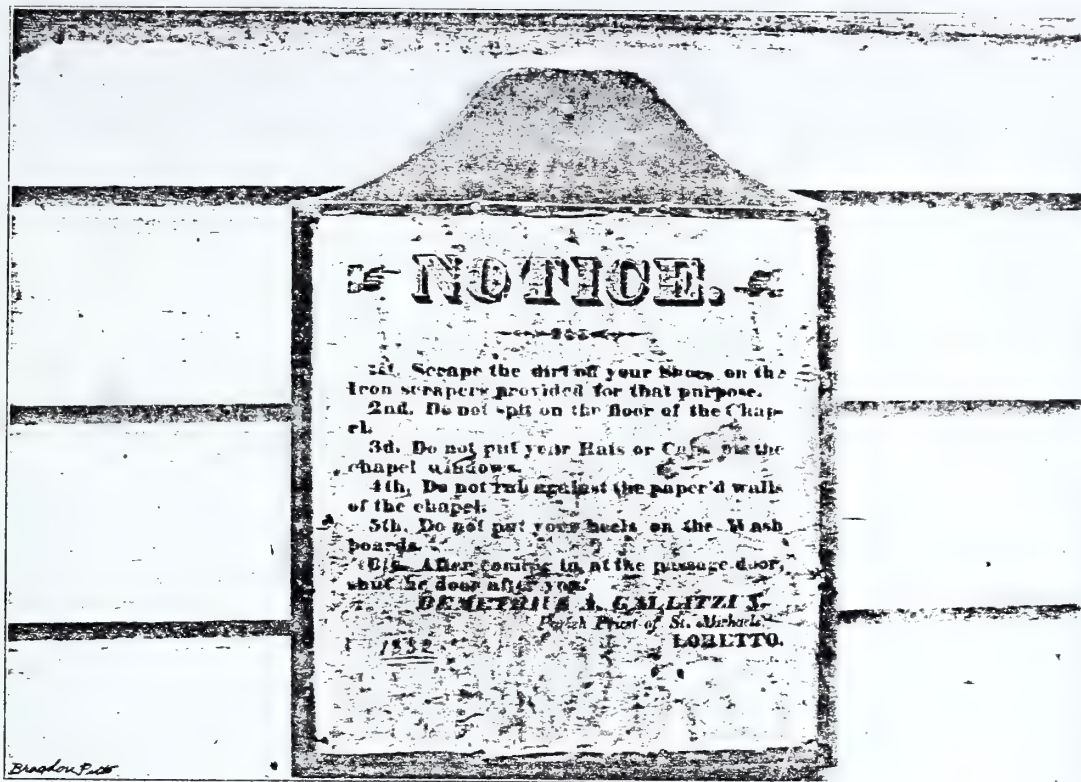 NOTICE.
1st. Scrape the dirt off your Shoes on the
Iron scrapers provided for that purpose.
2nd. Do not spit on the floor of the Chap-
el.
3d. Do not put your Hats or Caps on the
chapel windows.
4th, Do not rub against the paper'd walls
of the chapel.
5th. Do not put your heels on the Wash
boards.
6th. After coming in at the passage door,
shut the door after you.
DEMETRIUS A. GALLITZIN.
Parish Priest of St. Michaels
LORETTO.
1832
Bragdon Pitts